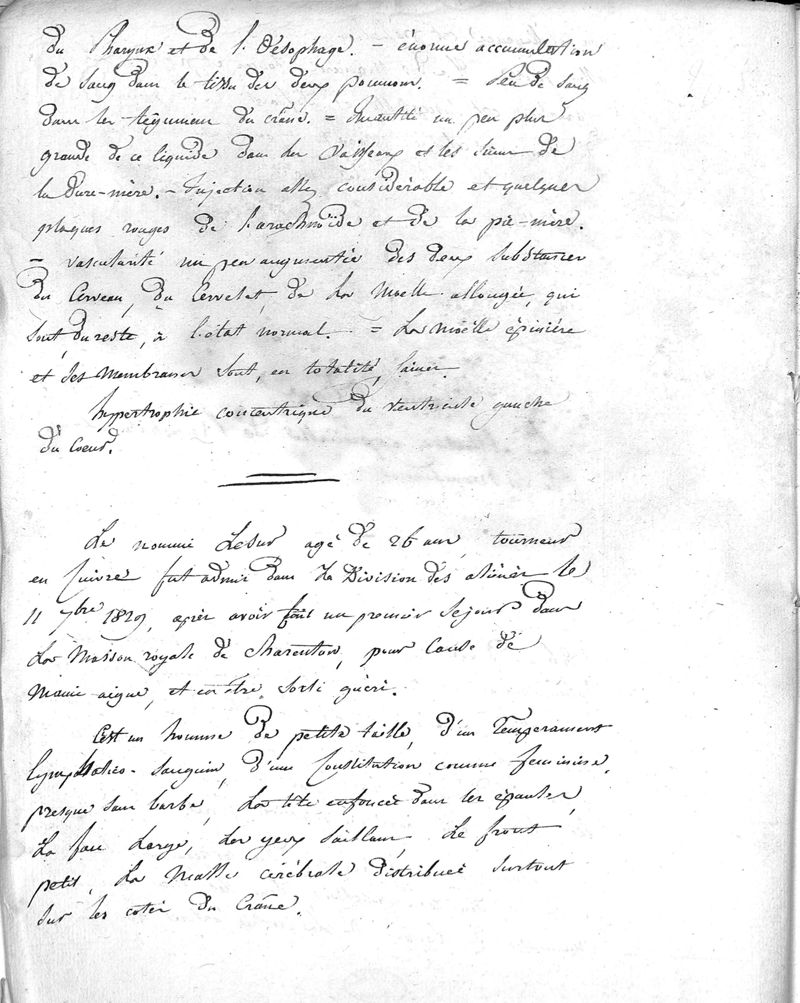 du Pharynx et de l'Œsophage. – énorme accumulation
de sang dans le tissu des deux poumons. = Peu de sang
dans les tégumens du crâne. = Quantité un peu plus
grande de ce liquide dans les vaisseaux et les sinus de
la dure-mère. – Injection assez considérable et quelques
plaques rouges de l'arachnoïde et de la pie-mère.
– vascularité un peu augmentée des deux substances
du Cerveau, du Cervelet, de la Moelle allongée, qui
sont, du reste, à l'état normal. = La moëlle épinière
et ses membranes sont, en totalité, saines.
hypertrophie concentrique du ventricule gauche
du Coeur.
Le nommé Lesur agé de 26 ans, tourneur
en Cuivre fut admis dans la Division des aliénés le
11 7bre 1829, après avoir fait un premier séjour dans
la Maison royale de Charenton, pour Cause de
Manie aigue, et en être sorti guéri.
C'est un homme de petite taille, d'un Temperament
lymphatico-sanguin, d'une Constitution comme feminine,
presque sans barbe, La tête enfoncée dans les épaules,
La face Large, Les yeux saillans, Le front
petit, La Masse cérébrale distribuée surtout
sur les cotés du Crâne.